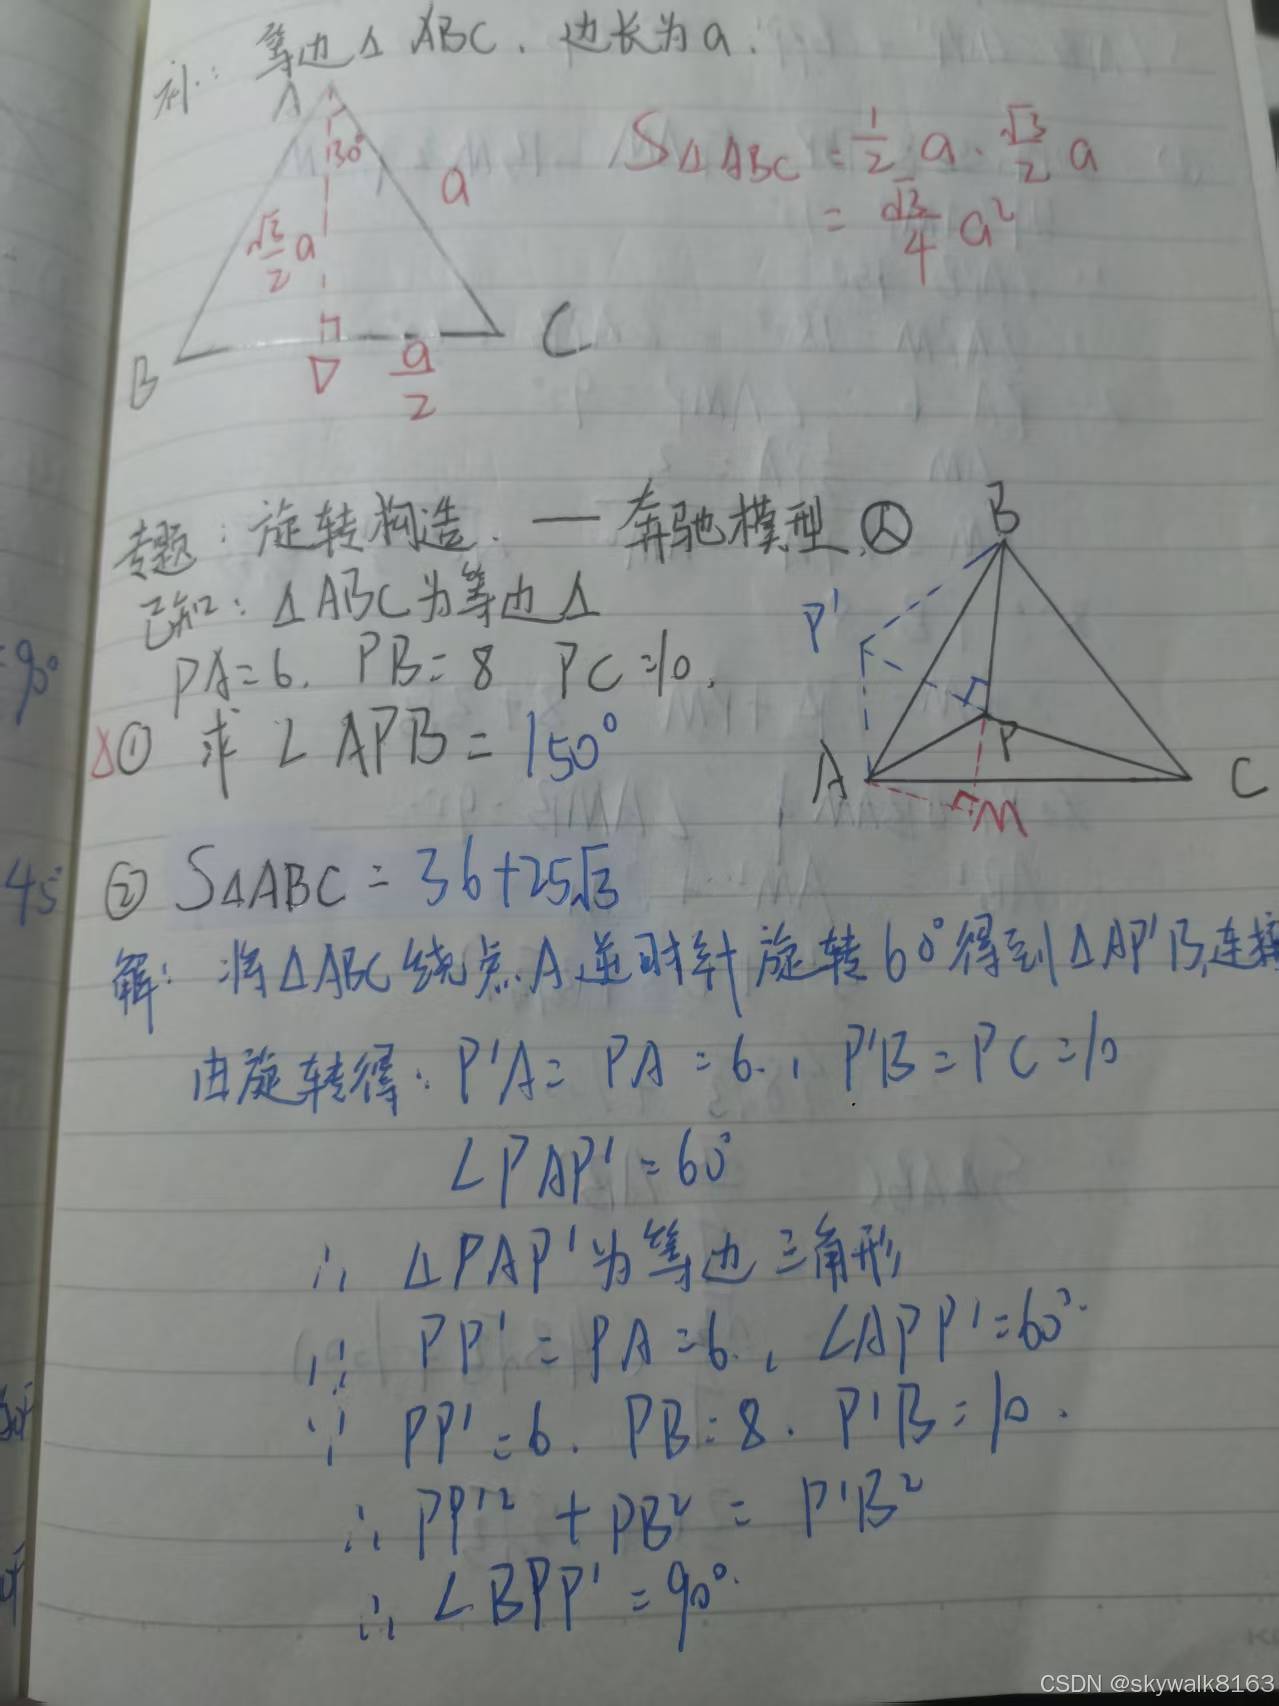 补: 等边△ABC. 边长为a.
A
30°
a
√3/2 a
B
D
a/2
C
S△ABC = 1/2 a · √3/2 a
= √3/4 a²
专题: 旋转构造. — 奔驰模型.
已知: △ABC为等边△
PA=6. PB=8 PC=10.
△① 求∠APB=150°
B
P'
P
A
M
C
=90°
45
② S△ABC = 36+25√3
解: 将△ABC绕点A逆时针旋转60°得到△AP'B,连接
由旋转得: P'A=PA=6., P'B=PC=10
∠PAP'=60°
∴ △PAP'为等边三角形
∴ PP'=PA=6., ∠APP'=60°.
∵ PP'=6. PB=8. P'B=10.
∴ PP'²+PB²=P'B²
∴ ∠BPP'=90°.
CSDN @skywalk8163